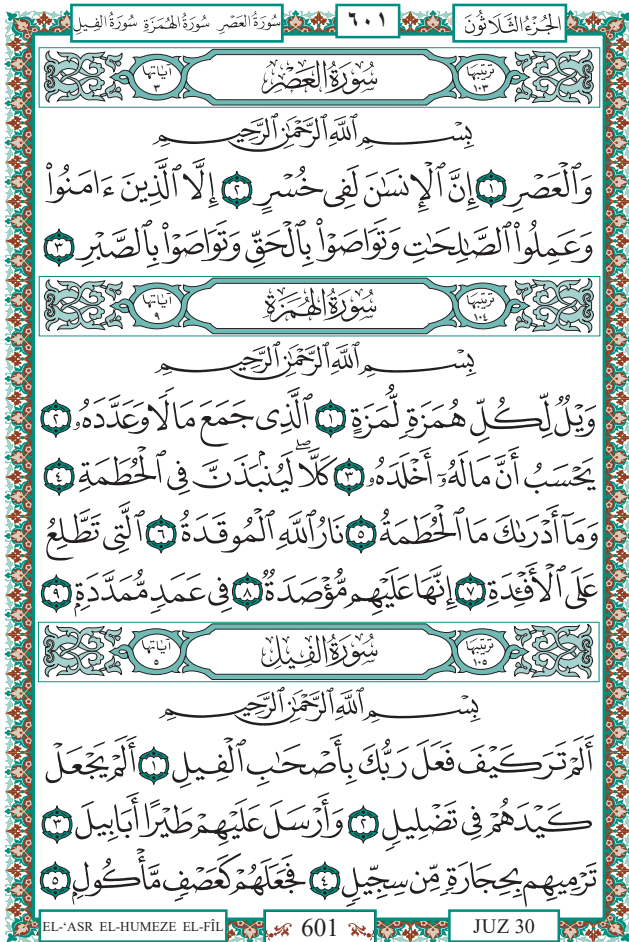 سُورَةُ العَصْرِ سُورَةُ الهُمَزَةِ سُورَةُ الفِيلِ ٦٠١ الجُزْءُ الثَّلَاثُونَ
تَرْتِيبُهَا ١٠٣ سُورَةُ العَصْرِ آيَاتُهَا ٣
بِسْمِ ٱللَّهِ ٱلرَّحْمَٰنِ ٱلرَّحِيمِ
وَٱلْعَصْرِ ١ إِنَّ ٱلْإِنسَٰنَ لَفِى خُسْرٍ ٢ إِلَّا ٱلَّذِينَ ءَامَنُوا۟
وَعَمِلُوا۟ ٱلصَّٰلِحَٰتِ وَتَوَاصَوْا۟ بِٱلْحَقِّ وَتَوَاصَوْا۟ بِٱلصَّبْرِ ٣
تَرْتِيبُهَا ١٠٤ سُورَةُ الهُمَزَةِ آيَاتُهَا ٩
بِسْمِ ٱللَّهِ ٱلرَّحْمَٰنِ ٱلرَّحِيمِ
وَيْلٌ لِّكُلِّ هُمَزَةٍ لُّمَزَةٍ ١ ٱلَّذِى جَمَعَ مَالًا وَعَدَّدَهُۥ ٢
يَحْسَبُ أَنَّ مَالَهُۥٓ أَخْلَدَهُۥ ٣ كَلَّا ۖ لَيُنۢبَذَنَّ فِى ٱلْحُطَمَةِ ٤
وَمَآ أَدْرَىٰكَ مَا ٱلْحُطَمَةُ ٥ نَارُ ٱللَّهِ ٱلْمُوقَدَةُ ٦ ٱلَّتِى تَطَّلِعُ
عَلَى ٱلْأَفْـِٔدَةِ ٧ إِنَّهَا عَلَيْهِم مُّؤْصَدَةٌ ٨ فِى عَمَدٍ مُّمَدَّدَةٍۭ ٩
تَرْتِيبُهَا ١٠٥ سُورَةُ الفِيلِ آيَاتُهَا ٥
بِسْمِ ٱللَّهِ ٱلرَّحْمَٰنِ ٱلرَّحِيمِ
أَلَمْ تَرَ كَيْفَ فَعَلَ رَبُّكَ بِأَصْحَٰبِ ٱلْفِيلِ ١ أَلَمْ يَجْعَلْ
كَيْدَهُمْ فِى تَضْلِيلٍ ٢ وَأَرْسَلَ عَلَيْهِمْ طَيْرًا أَبَابِيلَ ٣
تَرْمِيهِم بِحِجَارَةٍ مِّن سِجِّيلٍ ٤ فَجَعَلَهُمْ كَعَصْفٍ مَّأْكُولٍۭ ٥
EL-‘ASR EL-HUMEZE EL-FÎL 601 JUZ 30